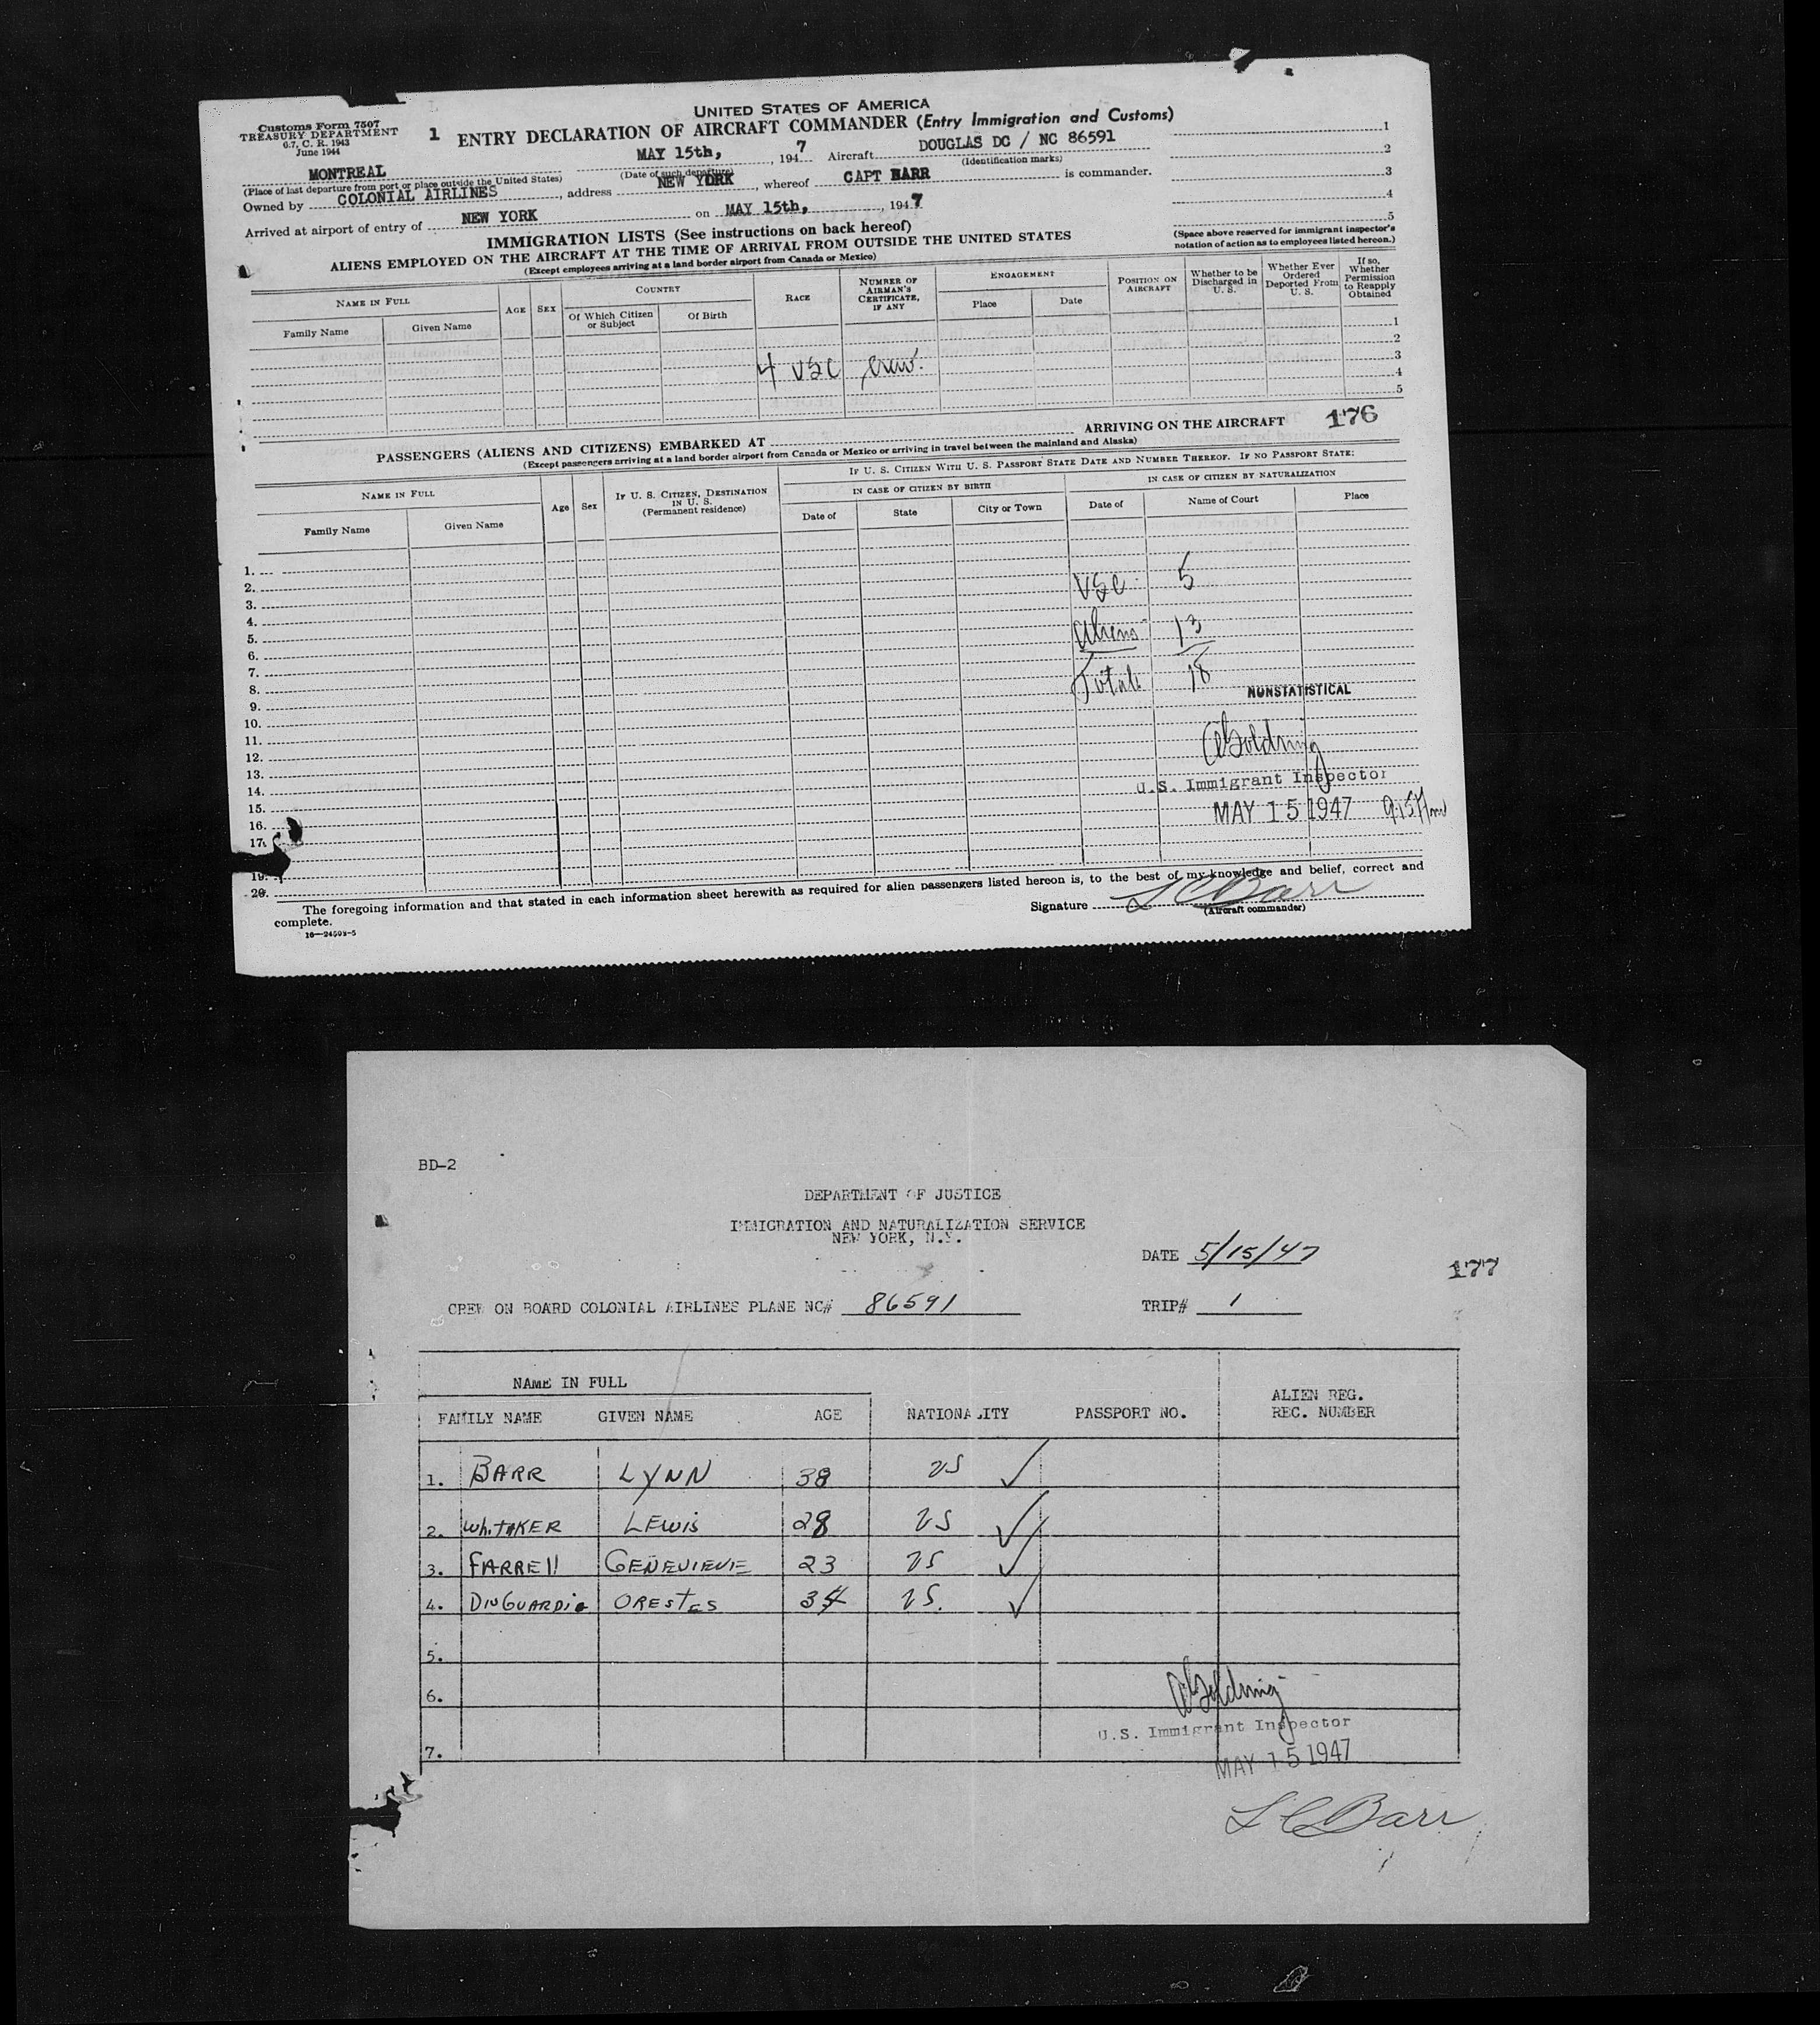 Customs Form 7507
TREASURY DEPARTMENT
6.7, C. R. 1943
June 1944
1
UNITED STATES OF AMERICA
ENTRY DECLARATION OF AIRCRAFT COMMANDER (Entry Immigration and Customs)
MONTREAL MAY 15th, , 1947 Aircraft DOUGLAS DC / NC 86591
(Place of last departure from port or place outside the United States) (Date of such departure) (Identification marks)
Owned by COLONIAL AIRLINES , address NEW YORK , whereof CAPT BARR is commander.
Arrived at airport of entry of NEW YORK on MAY 15th, , 1947
1
2
3
4
5
(Space above reserved for immigrant inspector's
notation of action as to employees listed hereon.)
IMMIGRATION LISTS (See instructions on back hereof)
ALIENS EMPLOYED ON THE AIRCRAFT AT THE TIME OF ARRIVAL FROM OUTSIDE THE UNITED STATES
(Except employees arriving at a land border airport from Canada or Mexico)
NAME IN FULL
Family Name Given Name
AGE SEX
COUNTRY
Of Which Citizen or Subject Of Birth
RACE
NUMBER OF AIRMAN'S CERTIFICATE, IF ANY
ENGAGEMENT
Place Date
POSITION ON AIRCRAFT
Whether to be Discharged in U. S.
Whether Ever Ordered Deported From U. S.
If so, Whether Permission to Reapply Obtained
1
2
3
4 USC Crew.
4
5
176
PASSENGERS (ALIENS AND CITIZENS) EMBARKED AT ARRIVING ON THE AIRCRAFT
(Except passengers arriving at a land border airport from Canada or Mexico or arriving in travel between the mainland and Alaska)
NAME IN FULL
Family Name Given Name
Age Sex
IF U. S. CITIZEN, DESTINATION IN U. S.
(Permanent residence)
IF U. S. CITIZEN WITH U. S. PASSPORT STATE DATE AND NUMBER THEREOF. IF NO PASSPORT STATE:
IN CASE OF CITIZEN BY BIRTH IN CASE OF CITIZEN BY NATURALIZATION
Date of State City or Town Date of Name of Court Place
1.
2. USC 5
3.
4.
5. Aliens 13
6.
7.
8. Total 18
9. NONSTATISTICAL
10.
11.
12. A Goldring
13.
14. U.S. Immigrant Inspector
15.
16. MAY 15 1947 9:15 Pm
17.
19.
20.
The foregoing information and that stated in each information sheet herewith as required for alien passengers listed hereon is, to the best of my knowledge and belief, correct and
complete.
Signature L C Barr
(Aircraft commander)
BD-2
DEPARTMENT OF JUSTICE
IMMIGRATION AND NATURALIZATION SERVICE
NEW YORK, N.Y.
DATE 5/15/47
177
CREW ON BOARD COLONIAL AIRLINES PLANE NC# 86591 TRIP# 1
NAME IN FULL
FAMILY NAME GIVEN NAME AGE NATIONALITY PASSPORT NO. ALIEN REG. REC. NUMBER
1. BARR LYNN 38 US ✓
2. WhiTAKER LEWis 28 US ✓
3. FARRELL GENEVIEVE 23 US ✓
4. DioGUARDia ORESTES 34 US. ✓
5.
6.
7.
A Goldring
U.S. Immigrant Inspector
MAY 15 1947
L C Barr